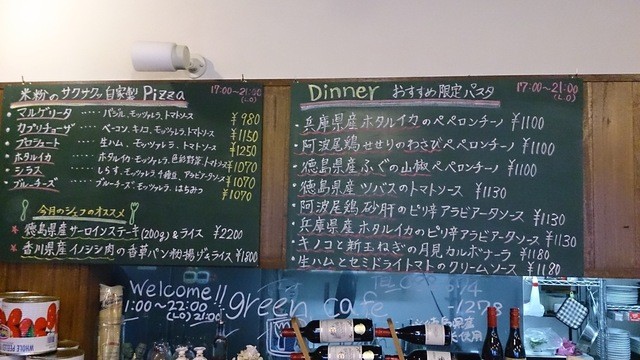 米粉のサクサクッ自家製 Pizza 17:00〜21:00 (L.O)
マルゲリータ ‥‥ バジル、モッツァレラ、トマトソース ¥980
カプリチョーザ ‥‥ ベーコン、キノコ、モッツァレラ、トマトソース ¥1150
プロシュート ‥‥ 生ハム、モッツァレラ、トマトソース ¥1250
ホタルイカ ‥‥ ホタルイカ、モッツァレラ、色彩野菜、トマトソース ¥1070
シラス ‥‥ しらす、モッツァレラ、アラビアータソース ¥1070
ブルーチーズ ‥‥ ブルーチーズ、モッツァレラ、はちみつ ¥1070
今月のシェフのオススメ
★徳島県産サーロインステーキ(200g)&ライス ¥2200
★香川県産イノシシ肉の香草パン粉揚げ&ライス ¥1800
Dinner おすすめ限定パスタ 17:00〜21:00 (L.O)
・兵庫県産ホタルイカのペペロンチーノ ¥1100
・阿波尾鶏せせりのわさびペペロンチーノ ¥1100
・徳島県産ふぐの山椒ペペロンチーノ ¥1100
・徳島県産ツバスのトマトソース ¥1130
・阿波尾鶏砂肝のピリ辛アラビアータソース ¥1130
・兵庫県産ホタルイカのピリ辛アラビアータソース ¥1130
・キノコと新玉ねぎの月見カルボナーラ ¥1180
・生ハムとセミドライトマトのクリームソース ¥1180
Welcome!! green cafe
1:00〜22:00
(L.O) 21:00
-1278